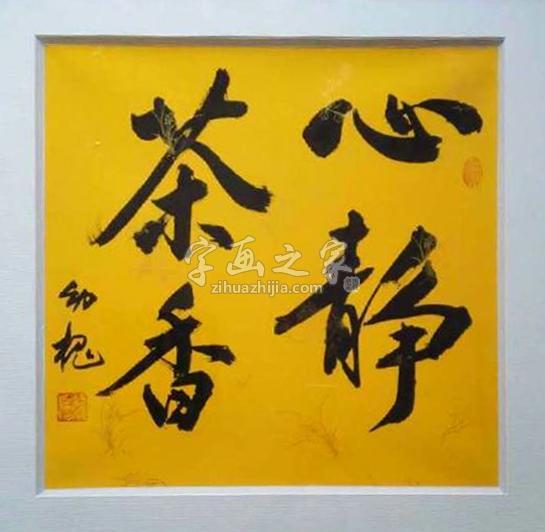 心静
茶香
幼槐
字画之家
zihuazhijia.com